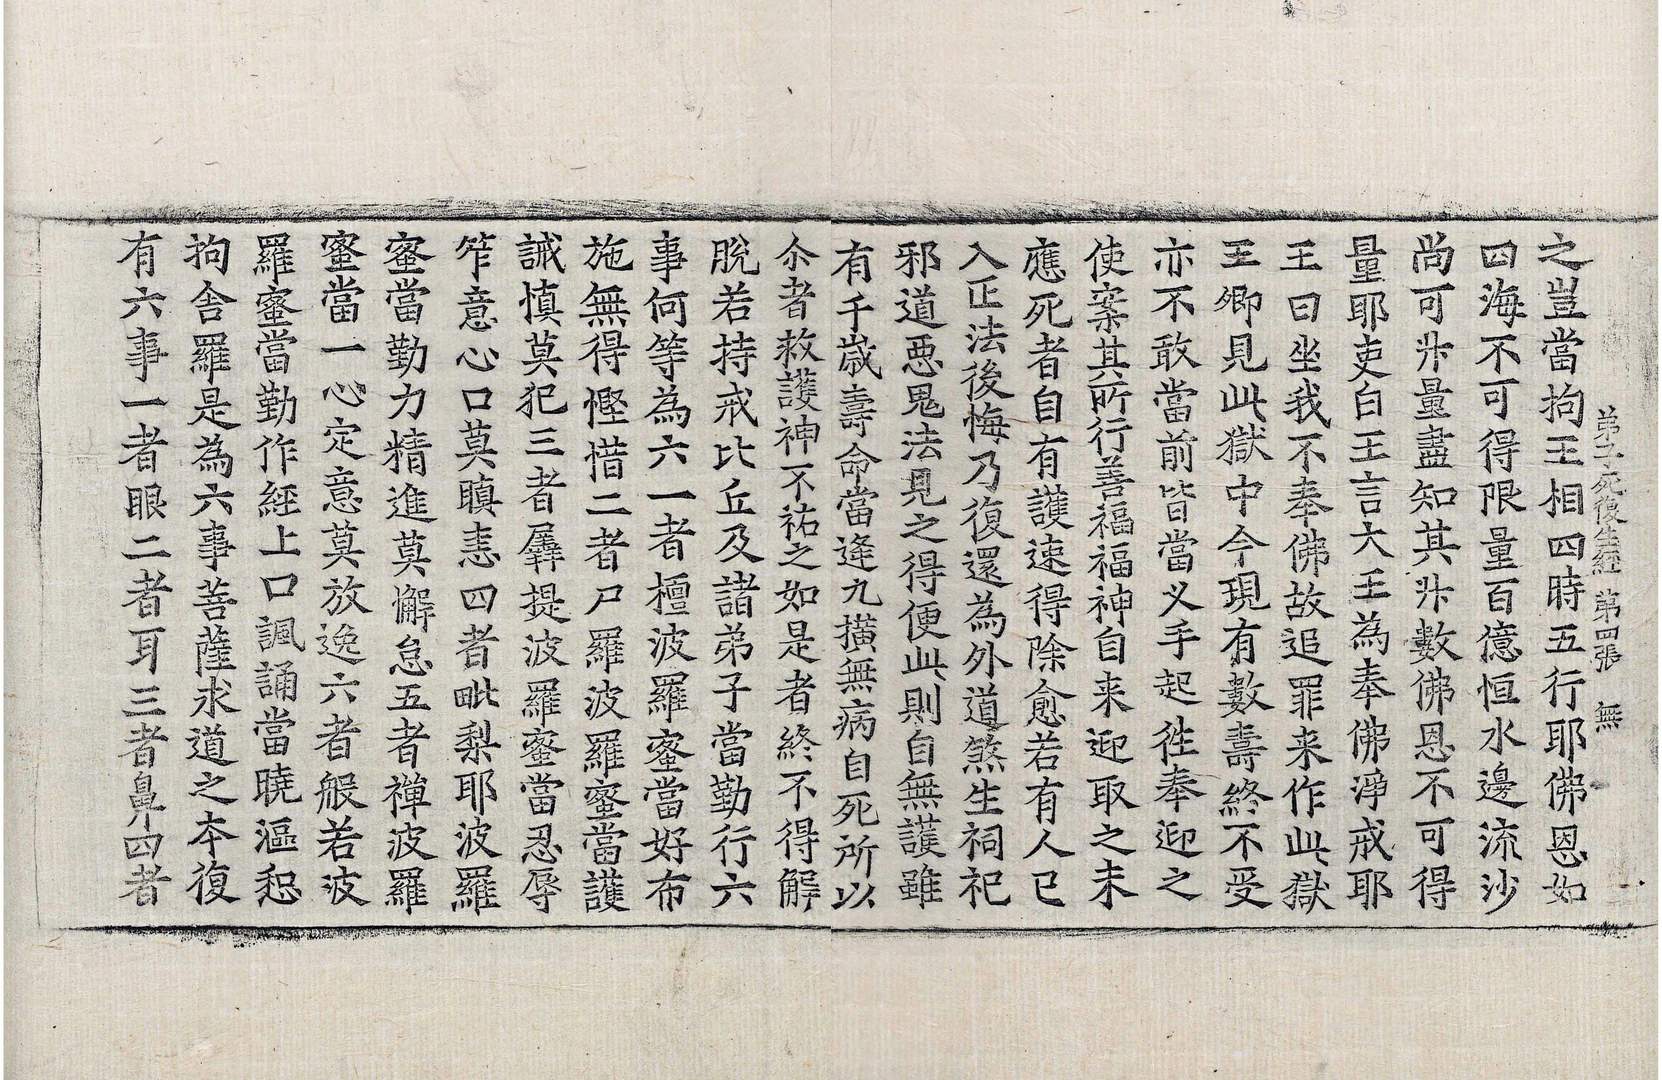 弟子死復生經 第四張 無
之豈當拘王相四時五行耶佛恩如
四海不可得限量百億恒水邊流沙
尚可㪷量盡知其㪷數佛恩不可得
量耶吏白王言大王為奉佛淨戒耶
王曰坐我不奉佛故追罪来作此獄
王卿見此獄中今現有數壽終不受
亦不敢當前皆當叉手起徃奉迎之
使案其所行善福福神自来迎取之未
應死者自有護速得除愈若有人已
入正法後悔乃復還為外道煞生祠祀
邪道惡鬼法見之得便此則自無護雖
有千歳壽命當逢九撗無病自死所以
尒者救護神不祐之如是者終不得解
脫若持戒比丘及諸弟子當勤行六
事何等為六一者檀波羅蜜當好布
施無得慳惜二者尸羅波羅蜜當護
誡慎莫犯三者羼提波羅蜜當忍辱
笮意心口莫瞋恚四者毗梨耶波羅
蜜當勤力精進莫懈怠五者禪波羅
蜜當一心定意莫放逸六者般若波
羅蜜當勤作經上口諷誦當曉漚惒
拘舍羅是為六事菩薩求道之本復
有六事一者眼二者耳三者鼻四者